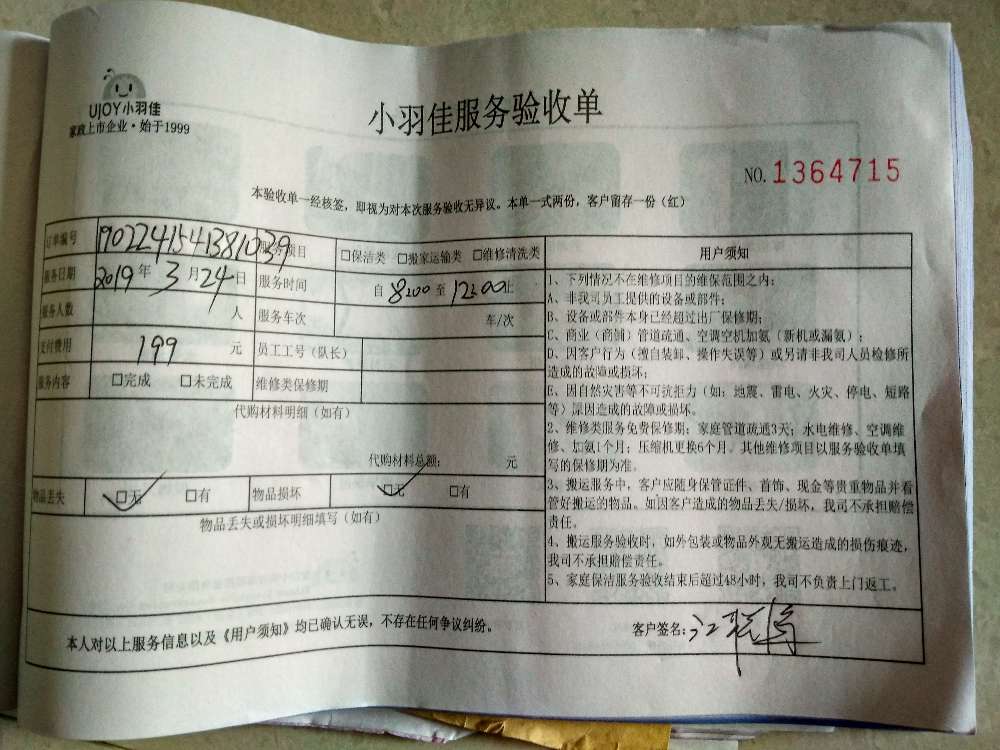 UJOY小羽佳
家政上市企业·始于1999
小羽佳服务验收单
NO.1364715
本验收单一经核签，即视为对本次服务验收无异议。本单一式两份，客户留存一份（红）
订单编号 1902241541381039 服务项目 □保洁类 □搬家运输类 □维修清洗类
服务日期 2019年3月24日 服务时间 自8:00至12:00止
服务人数 人 服务车次 车/次
支付费用 199 元 员工工号（队长）
服务内容 □完成 □未完成 维修类保修期
代购材料明细（如有）
代购材料总额： 元
物品丢失 □无 □有 物品损坏 □无 □有
物品丢失或损坏明细填写（如有）
用户须知
1、下列情况不在维修项目的维保范围之内：
A、非我司员工提供的设备或部件；
B、设备或部件本身已经超过出厂保修期；
C、商业（商铺）管道疏通、空调空机加氨（新机或漏氨）；
D、因客户行为（擅自装卸、操作失误等）或另请非我司人员检修所
造成的故障或损坏；
E、因自然灾害等不可抗拒力（如：地震、雷电、火灾、停电、短路
等）原因造成的故障或损坏。
2、维修类服务免费保修期：家庭管道疏通3天；水电维修、空调维
修、加氨1个月；压缩机更换6个月。其他维修项目以服务验收单填
写的保修期为准。
3、搬运服务中，客户应随身保管证件、首饰、现金等贵重物品并看
管好搬运的物品。如因客户造成的物品丢失/损坏，我司不承担赔偿
责任。
4、搬运服务验收时，如外包装或物品外观无搬运造成的损伤痕迹，
我司不承担赔偿责任。
5、家庭保洁服务验收结束后超过48小时，我司不负责上门返工。
本人对以上服务信息以及《用户须知》均已确认无误，不存在任何争议纠纷。
客户签名：